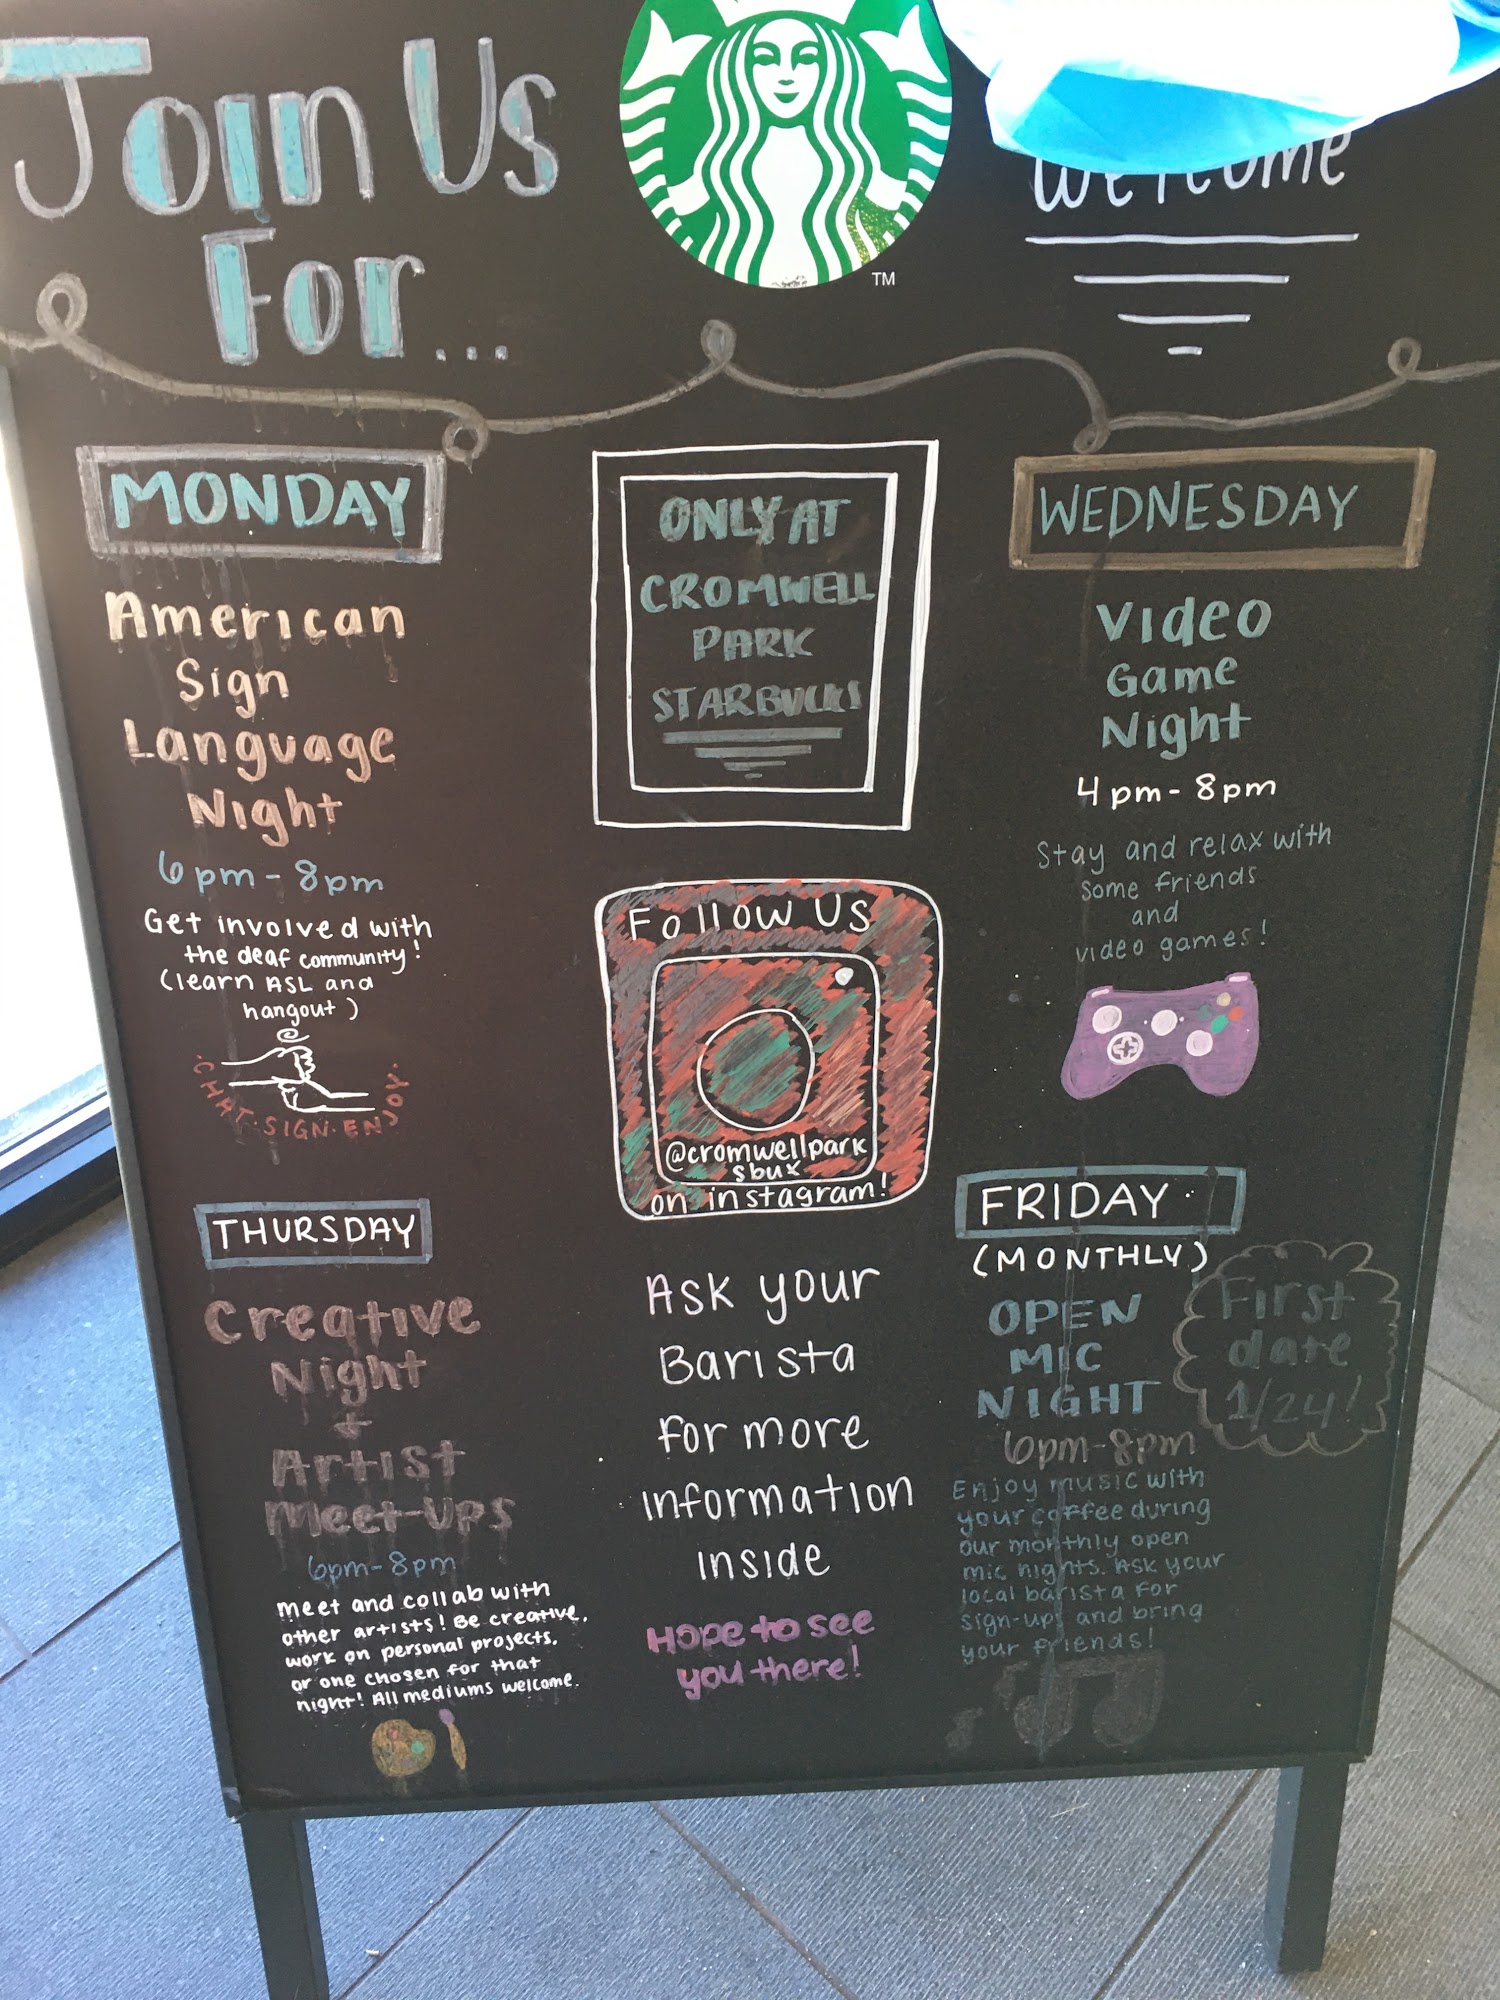 Join Us
For...
TM
Welcome
MONDAY
American
Sign
Language
Night
6pm-8pm
Get involved with
the deaf community!
(learn ASL and
hangout)
·CHAT·SIGN·ENJOY·
ONLY AT
CROMWELL
PARK
STARBUCKS
WEDNESDAY
Video
Game
Night
4pm-8pm
Stay and relax with
some friends
and
video games!
Follow US
@cromwellpark
sbux
on instagram!
THURSDAY
Creative
Night
+
Artist
Meet-Ups
6pm-8pm
Meet and collab with
other artists! Be creative,
work on personal projects,
or one chosen for that
night! All mediums welcome.
Ask your
Barista
for more
information
inside
Hope to see
you there!
FRIDAY
(MONTHLY)
OPEN
MIC
NIGHT
First
date
1/24!
6pm-8pm
Enjoy music with
your coffee during
our monthly open
mic nights. Ask your
local barista for
sign-ups and bring
your friends!